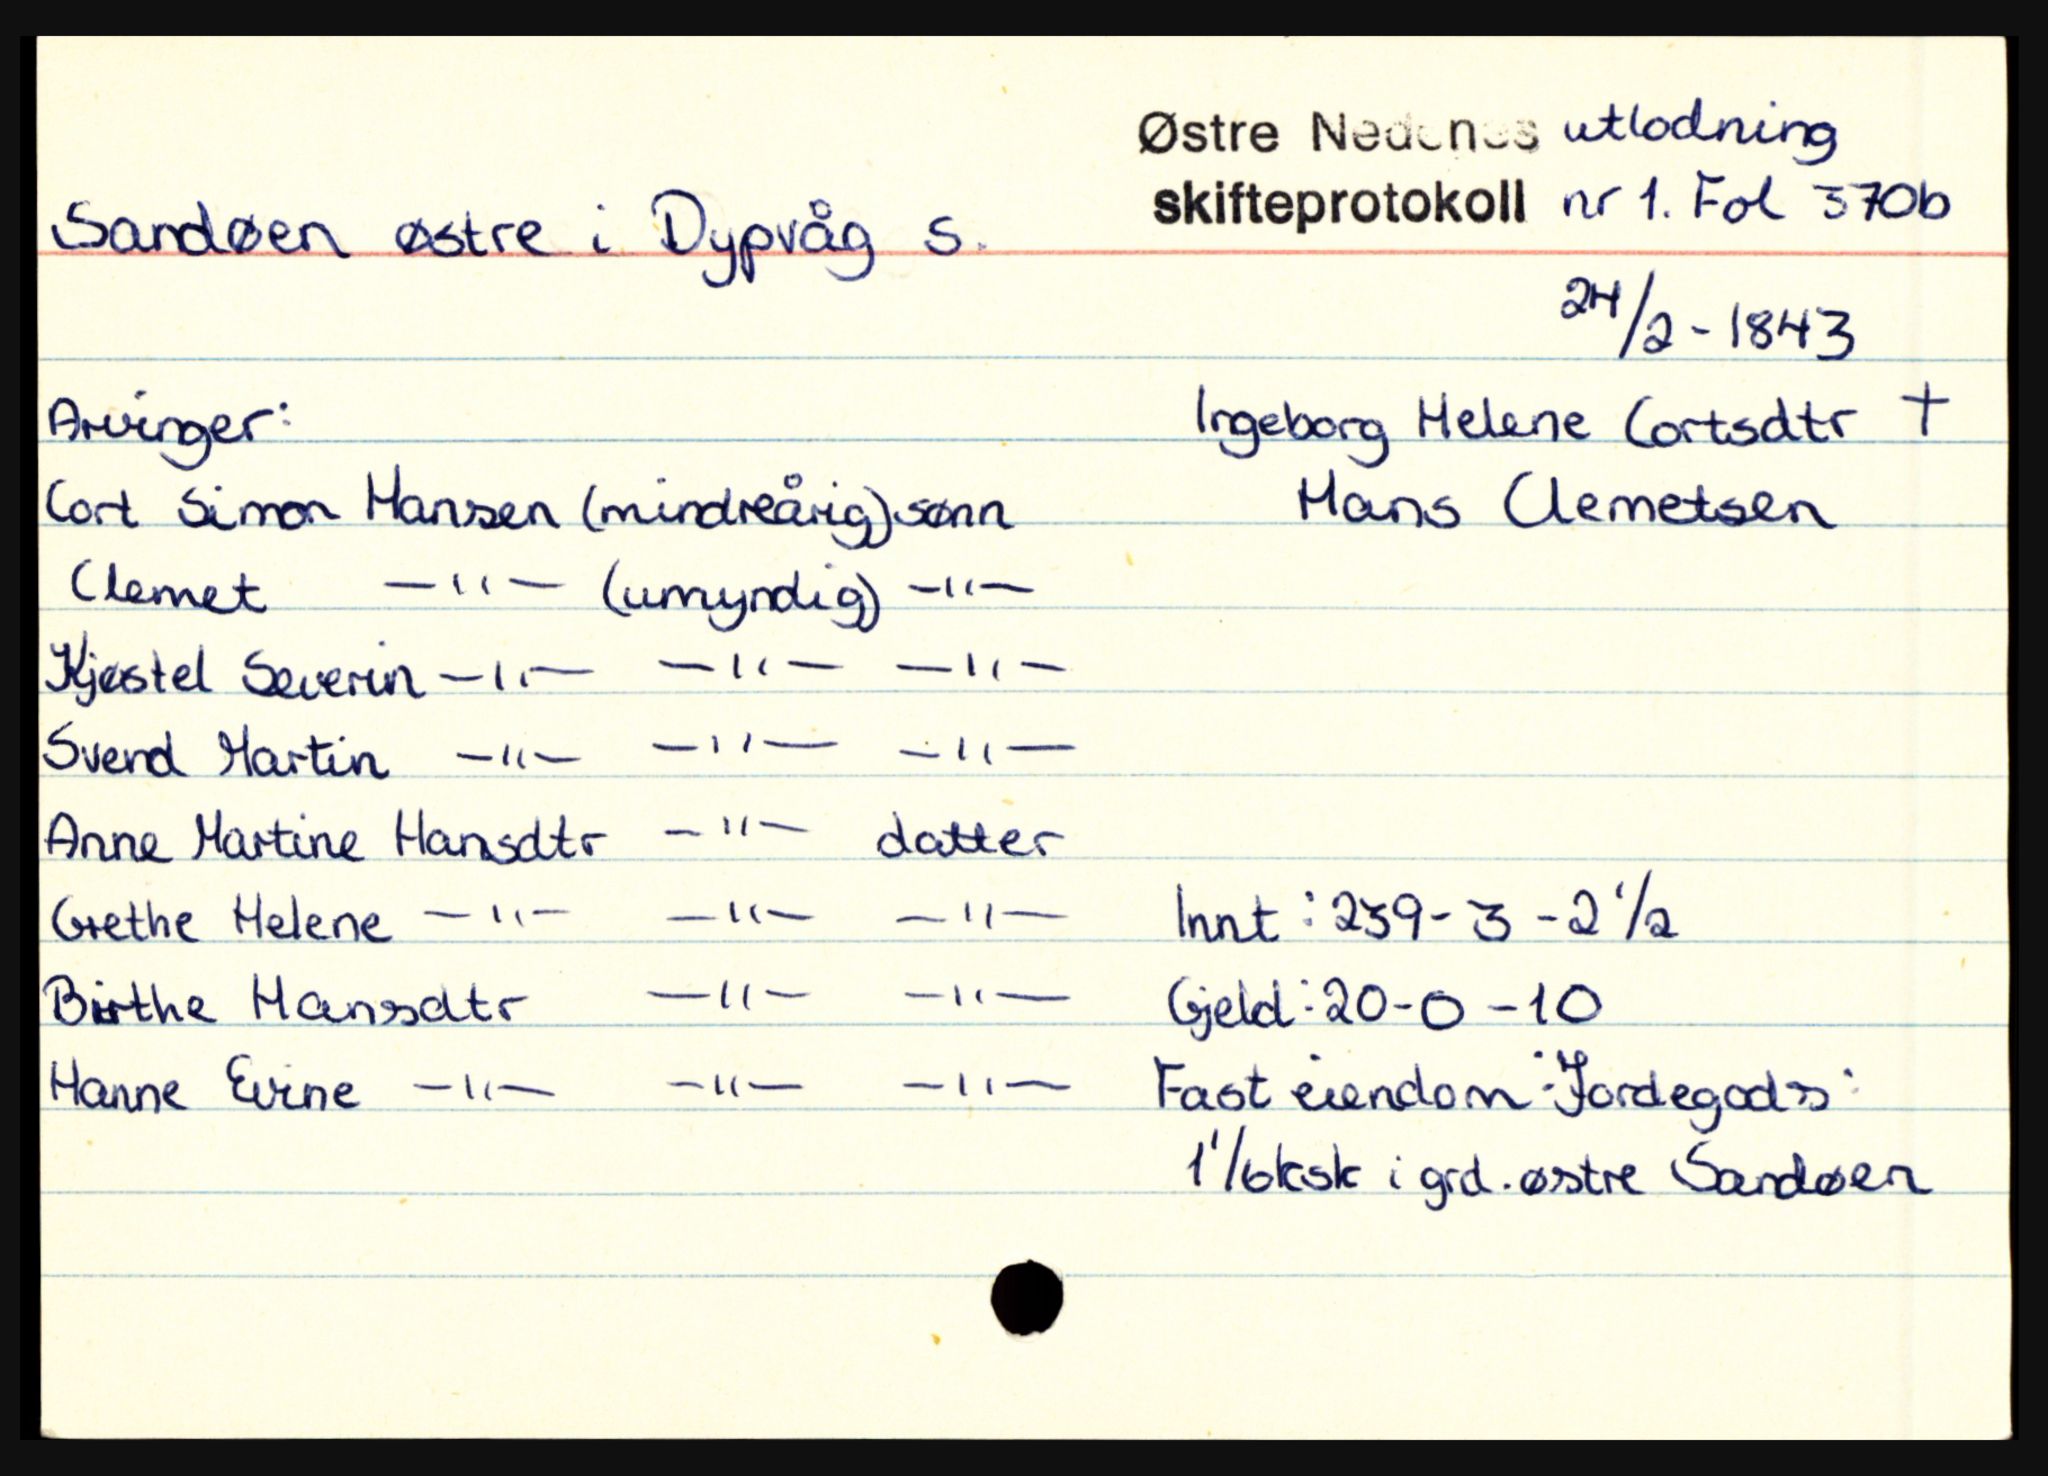 Østre Nedenes utlodning
skifteprotokoll nr 1. Fol 370b
Sandøen østre i Dypvåg s.
24/2 - 1843
Arvinger:
Ingeborg Helene Cortsdtr +
Cort Simon Hansen (mindreårig) sønn
Hans Clemetsen
Clemet —"— (umyndig) —"—
Kjøstel Severin —"— —"— —"—
Svend Martin —"— —"— —"—
Anne Martine Hansdtr —"— datter
Grethe Helene —"— —"— —"—
Innt: 239 - 3 - 2 1/2
Birthe Hansdtr —"— —"—
Gjeld: 20 - 0 - 10
Hanne Evine —"— —"— —"—
Fast eiendom: Jordegods:
1 1/6 ksk i grd. østre Sandøen